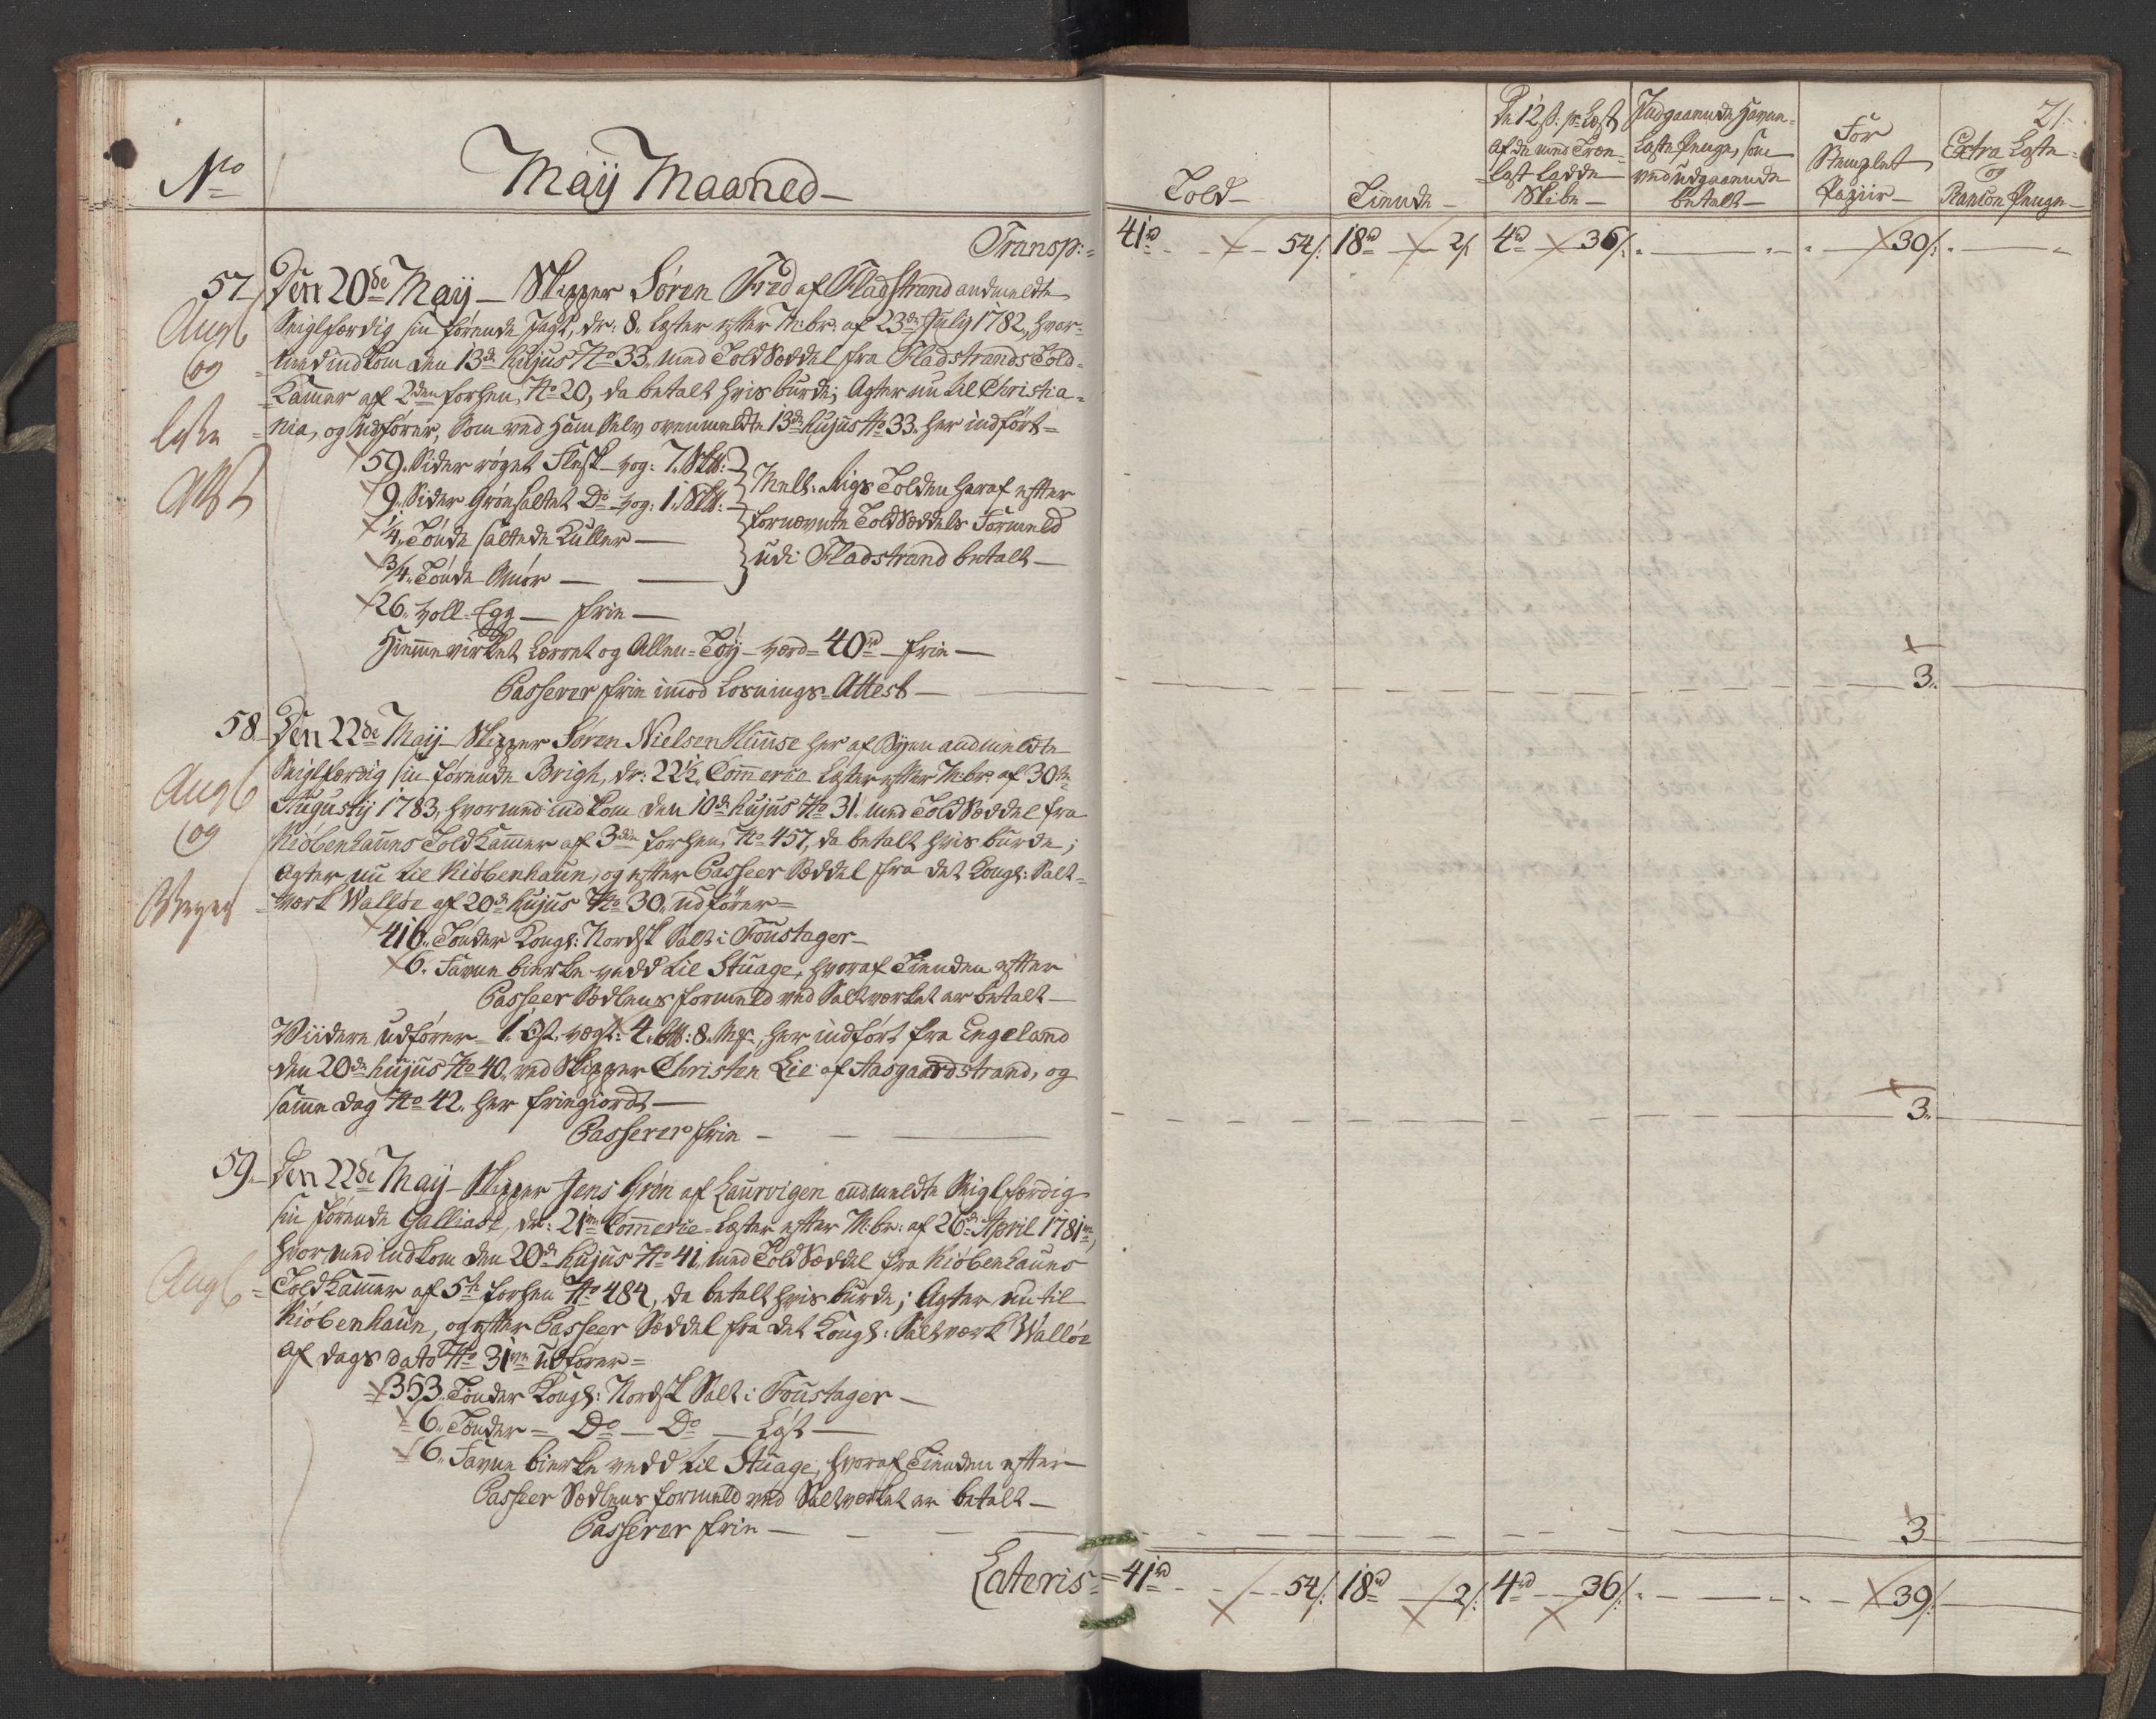 No
Maij Maaned
Transp:
57. Den 20de Maij Skipper Søren Fred af Fladstrand andmeldte
Seiglfærdig sin førende Jagt, dr: 8. Læster efter M:br: af 23de Julij 1782, hvor-
med indkom den 13de hujus No 33. med Told Seddel fra Fladstrands Told-
Kammer af 2den forhen, No 20, da betalt hvis burde; Agter nu til Christia-
nia, og udfører, som ved ham selv ovenmeldte 13de hujus No 33. her indført
59. Sider røget Flesk vog: 7. Sk℔:
9. Sider Grønsaltet Do vog: 1. Sk℔:
1/4. Tønde saltede Kuller
3/4. Tønde Smør
Tolden heraf efter
fornævnte Told Seddels Formeld
udi Fladstrand betalt
26. Voll Egg frie
Hiemmevirket Lærret og Ullen-Tøij værd 40rd frie
Passerer frie imod Losnings-Attest
58. Den 22de Maij Skipper Søren Nielsen her af Byen andmeldte
Seiglfærdig sin førende Brigh, dr: 22½ Commerce Læster efter M:br: af 30te
Augustij 1783, hvormed indkom den 10de hujus No 31. med Told Seddel fra
Kiøbenhauns Told Kammer af 3die forhen, No 457, da betalt hvis burde;
Agter nu til Kiøbenhaun, og efter Passeer Seddel fra det Kongl: Salt-
værk Walløe af 20de hujus No 30. udfører
416. Tønder Kongl: Nordsk Salt i Foustager
6. Favne birke vedd til Stuage, hvoraf Tienden efter
Passeer Sedlens formeld ved Saltværket er betalt
Widere udfører 1. Ost, vægt: 4. ℔: 8. Mk, her indført fra Engeland
den 20de hujus No 40. ved Skipper Christen Lie af Aasgaardstrand, og
samme dag No 42. her friegiordt
Passerer frie
59. Den 22de Maij Skipper Jens Grøn af Laurvigen andmeldte Seiglfærdig
sin førende Galliase, dr: 21 Commerce-Læster efter M:br: af 26de April 1781,
hvormed indkom den 20de hujus No 41, med Told Seddel fra Kiøbenhauns
Told Kammer af 5te forhen No 484, da betalt hvis burde; Agter nu til
Kiøbenhaun, og efter Passeer Seddel fra det Kongl: Saltværk Walløe
af dags dato No 31 udfører
353. Tønder Kongl: Nordsk Salt i Foustager
6. Tønder Do Do Løst
6. Favne birke vedd til Stuage, hvoraf Tienden efter
Passeer Sedlens formeld ved Saltværket er betalt
Passerer frie
Lateris
og
og
21.
Told
Tiende
De 12 s: pr Læst
af de med Træ-
last ladde
Skibe
Indgaaende Havne-
Laste Penge, som
ved udgaaende
betalt
For
Stemplet
Papiir
Extra Laste
og
Ranson Penge
41rd 54s: 18rd 2s 4rd 36s: 30s:
3.
3.
3
41rd 54s: 18rd 2s: 4rd 36s: 39s: